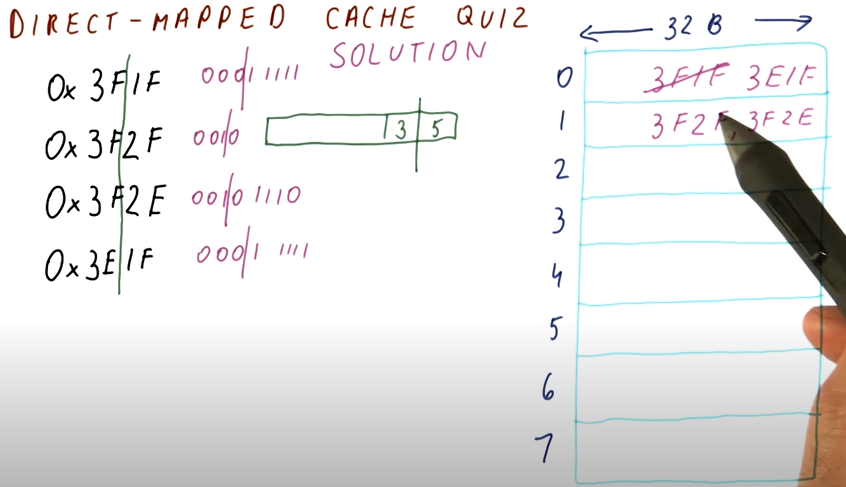 DIRECT-MAPPED CACHE QUIZ
SOLUTION
0x3F1F 00011111
0x3F2F 0010
0x3F2E 00101110
0x3E1F 00011111
3 5
32 B
0 3F1F 3E1F
1 3F2F, 3F2E
2
3
4
5
6
7